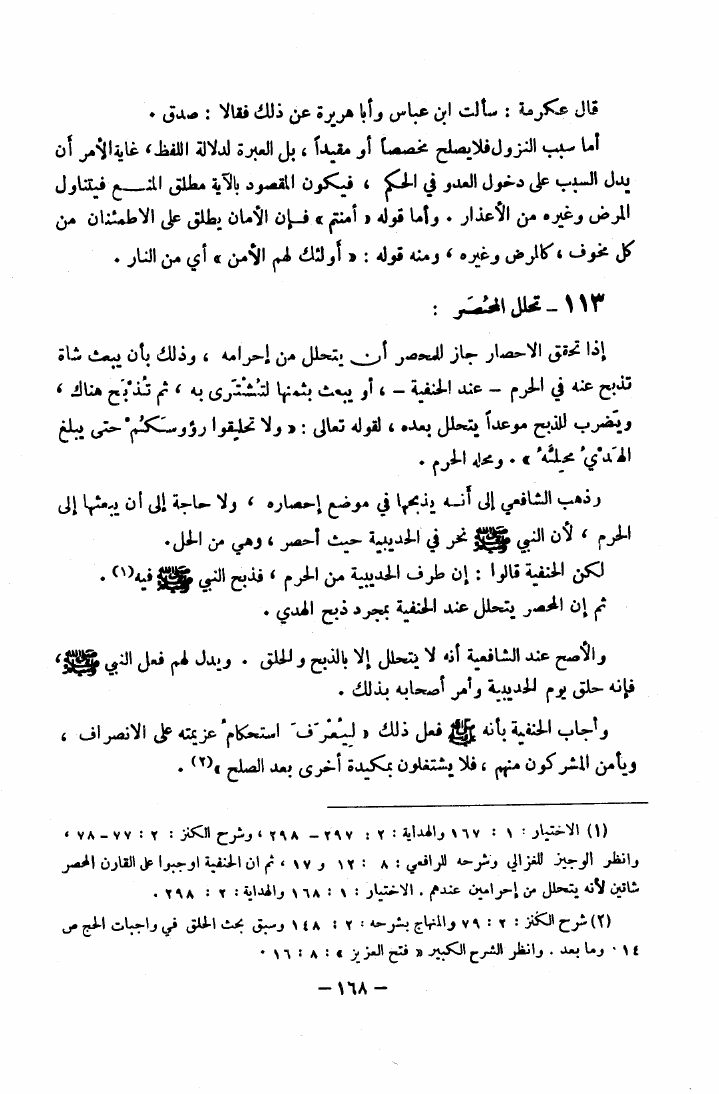 قال عكرمة : سألت ابن عباس وأبا هريرة عن ذلك فقالا : صدق .
أما سبب النزول فلا يصلح مخصصاً أو مقيداً ، بل العبرة لدلالة اللفظ ، غاية الأمر أن
يدل السبب على دخول العدو في الحكم ، فيكون المقصود بالآية مطلق المنـع فيتناول
المرض وغيره من الأعذار . وأما قوله « أمنتم » فـإن الأمان يطلق على الاطمئنان من
كل مخوف ، كالمرض وغيره ، ومنه قوله : « أولئك لهم الأمن » أي من النار .
١١٣ ـ تحلل المحْصَر :
إذا تحقق الاحصار جاز للمحصر أن يتحلل من إحرامه ، وذلك بأن يبعث شاة
تذبح عنه في الحرم – عند الحنفية – ، أو يبعث بثمنها لتُشْتَرى به ، ثم تُذْبَح هناك ،
ويَضرب للذبح موعداً يتحلل بعده ، لقوله تعالى : « ولا تحلِقوا رؤوسَكُم ْحتى يبلغ
الهَدْيُ محِلَّهُ » . ومحله الحرم .
وذهب الشافعي إلى أنـه يذبحها في موضع إحصاره ، ولا حاجة إلى أن يبعثها إلى
الحرم ، لأن النبي ﷺ نحر في الحديبية حيث أحصر ، وهي من الحل.
لكن الحنفية قالوا : إن طرف الحديبية من الحرم ، فذبح النبي ﷺ فيه(١) .
ثم إن المحصر يتحلل عند الحنفية بمجرد ذبح الهدي .
والأصح عند الشافعية أنه لا يتحلل إلا بالذبح والحلق . ويدل لهم فعل النبي ﷺ ،
فإنه حلق يوم الحديبية وأمر أصحابه بذلك .
وأجاب الحنفية بأنه ﷺ فعل ذلك « لِيُعْرَفَ استحكامُ عزيمته على الانصراف ،
ويأمن المشركون منهم ، فلا يشتغلون بمكيدة أخرى بعد الصلح »(٢) .
(١) الاختيار : ١ : ١٦٧ والهداية : ٢ : ٢٩٧ – ٢٩٨ ، وشرح الكنز : ٢ : ٧٧ – ٧٨ ،
وانظر الوجيز للغزالي وشرحه للرافعي : ٨ : ١٢ و ١٧ ، ثم ان الحنفية اوجبوا على القارن المحصر
شاتين لأنه يتحلل من إحرامين عندهم . الاختيار : ١ : ١٦٨ والهداية : ٢ : ٢٩٨ .
(٢) شرح الكنز : ٢ : ٧٩ والمنهاج بشرحه : ٢ : ١٤٨ وسبق بحث الحلق في واجبات الحج ص
١٤٠ وما بعد . وانظر الشرح الكبير « فتح العزيز » : ٨ : ١٦ .
– ١٦٨ –